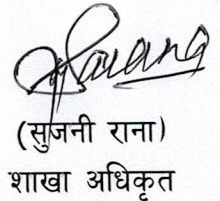 (सुजनी राना)
शाखा अधिकृत